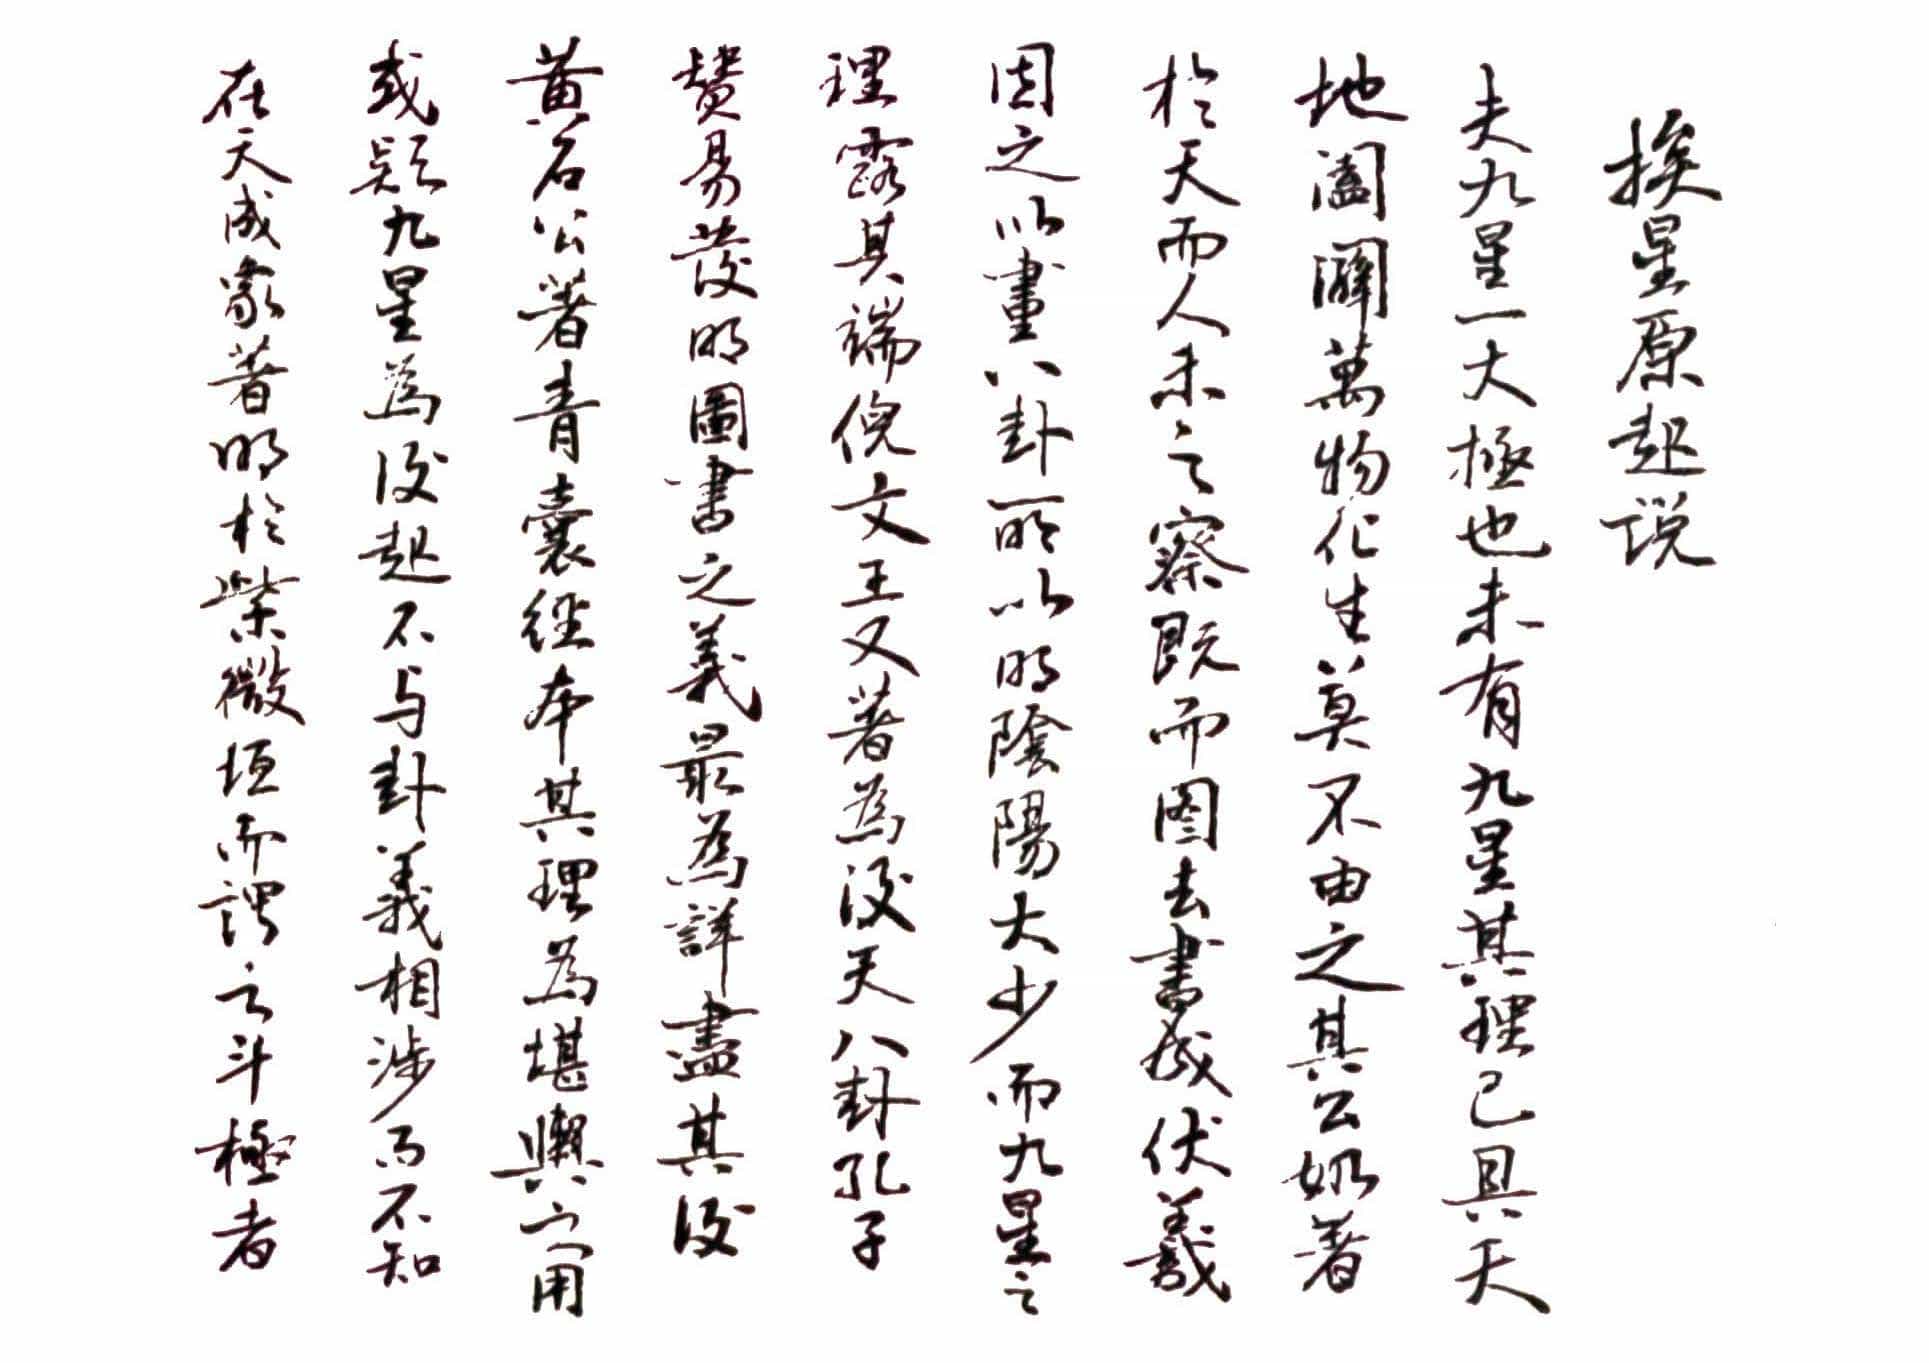 挨星原起说
夫九星一大極也未有九星其理已具天
地阖闢萬物化生莫不由之其公奶著
於天而人未之察既而图去書成伏羲
因之以畫八卦所以明陰陽大少而九星之
理露其端倪文王又著為後天八卦孔子
賛易發明圖書之義最為詳盡其後
黄石公著青囊经本其理為堪輿之用
或疑九星為後起不与卦義相涉而不知
在天成象著明於紫微垣而謂之斗極者